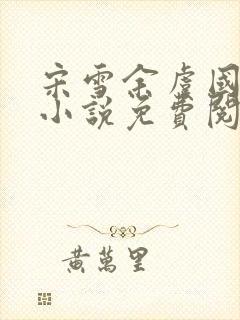 宋雪余虞國
小說免費閱
黃萬里